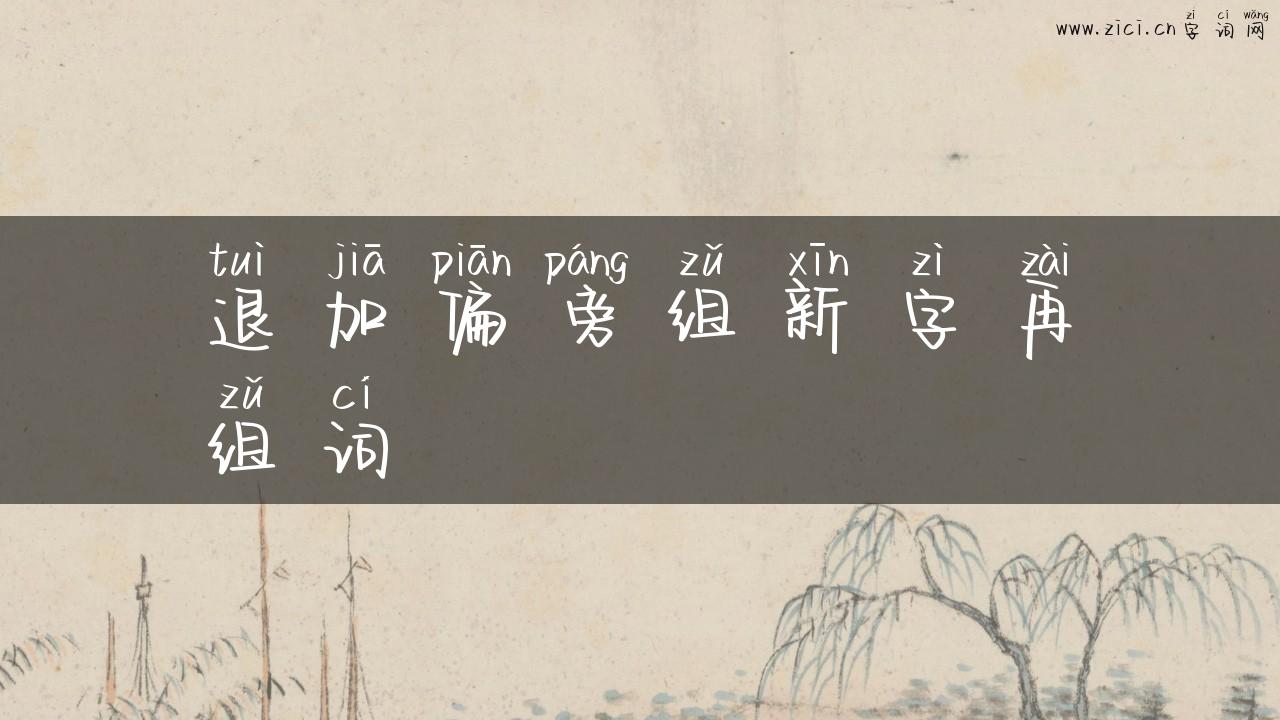 zì cí wǎng
www.zici.cn 字词网
tuì jiā piān páng zǔ xīn zì zài
退加偏旁组新字再
zǔ cí
组词